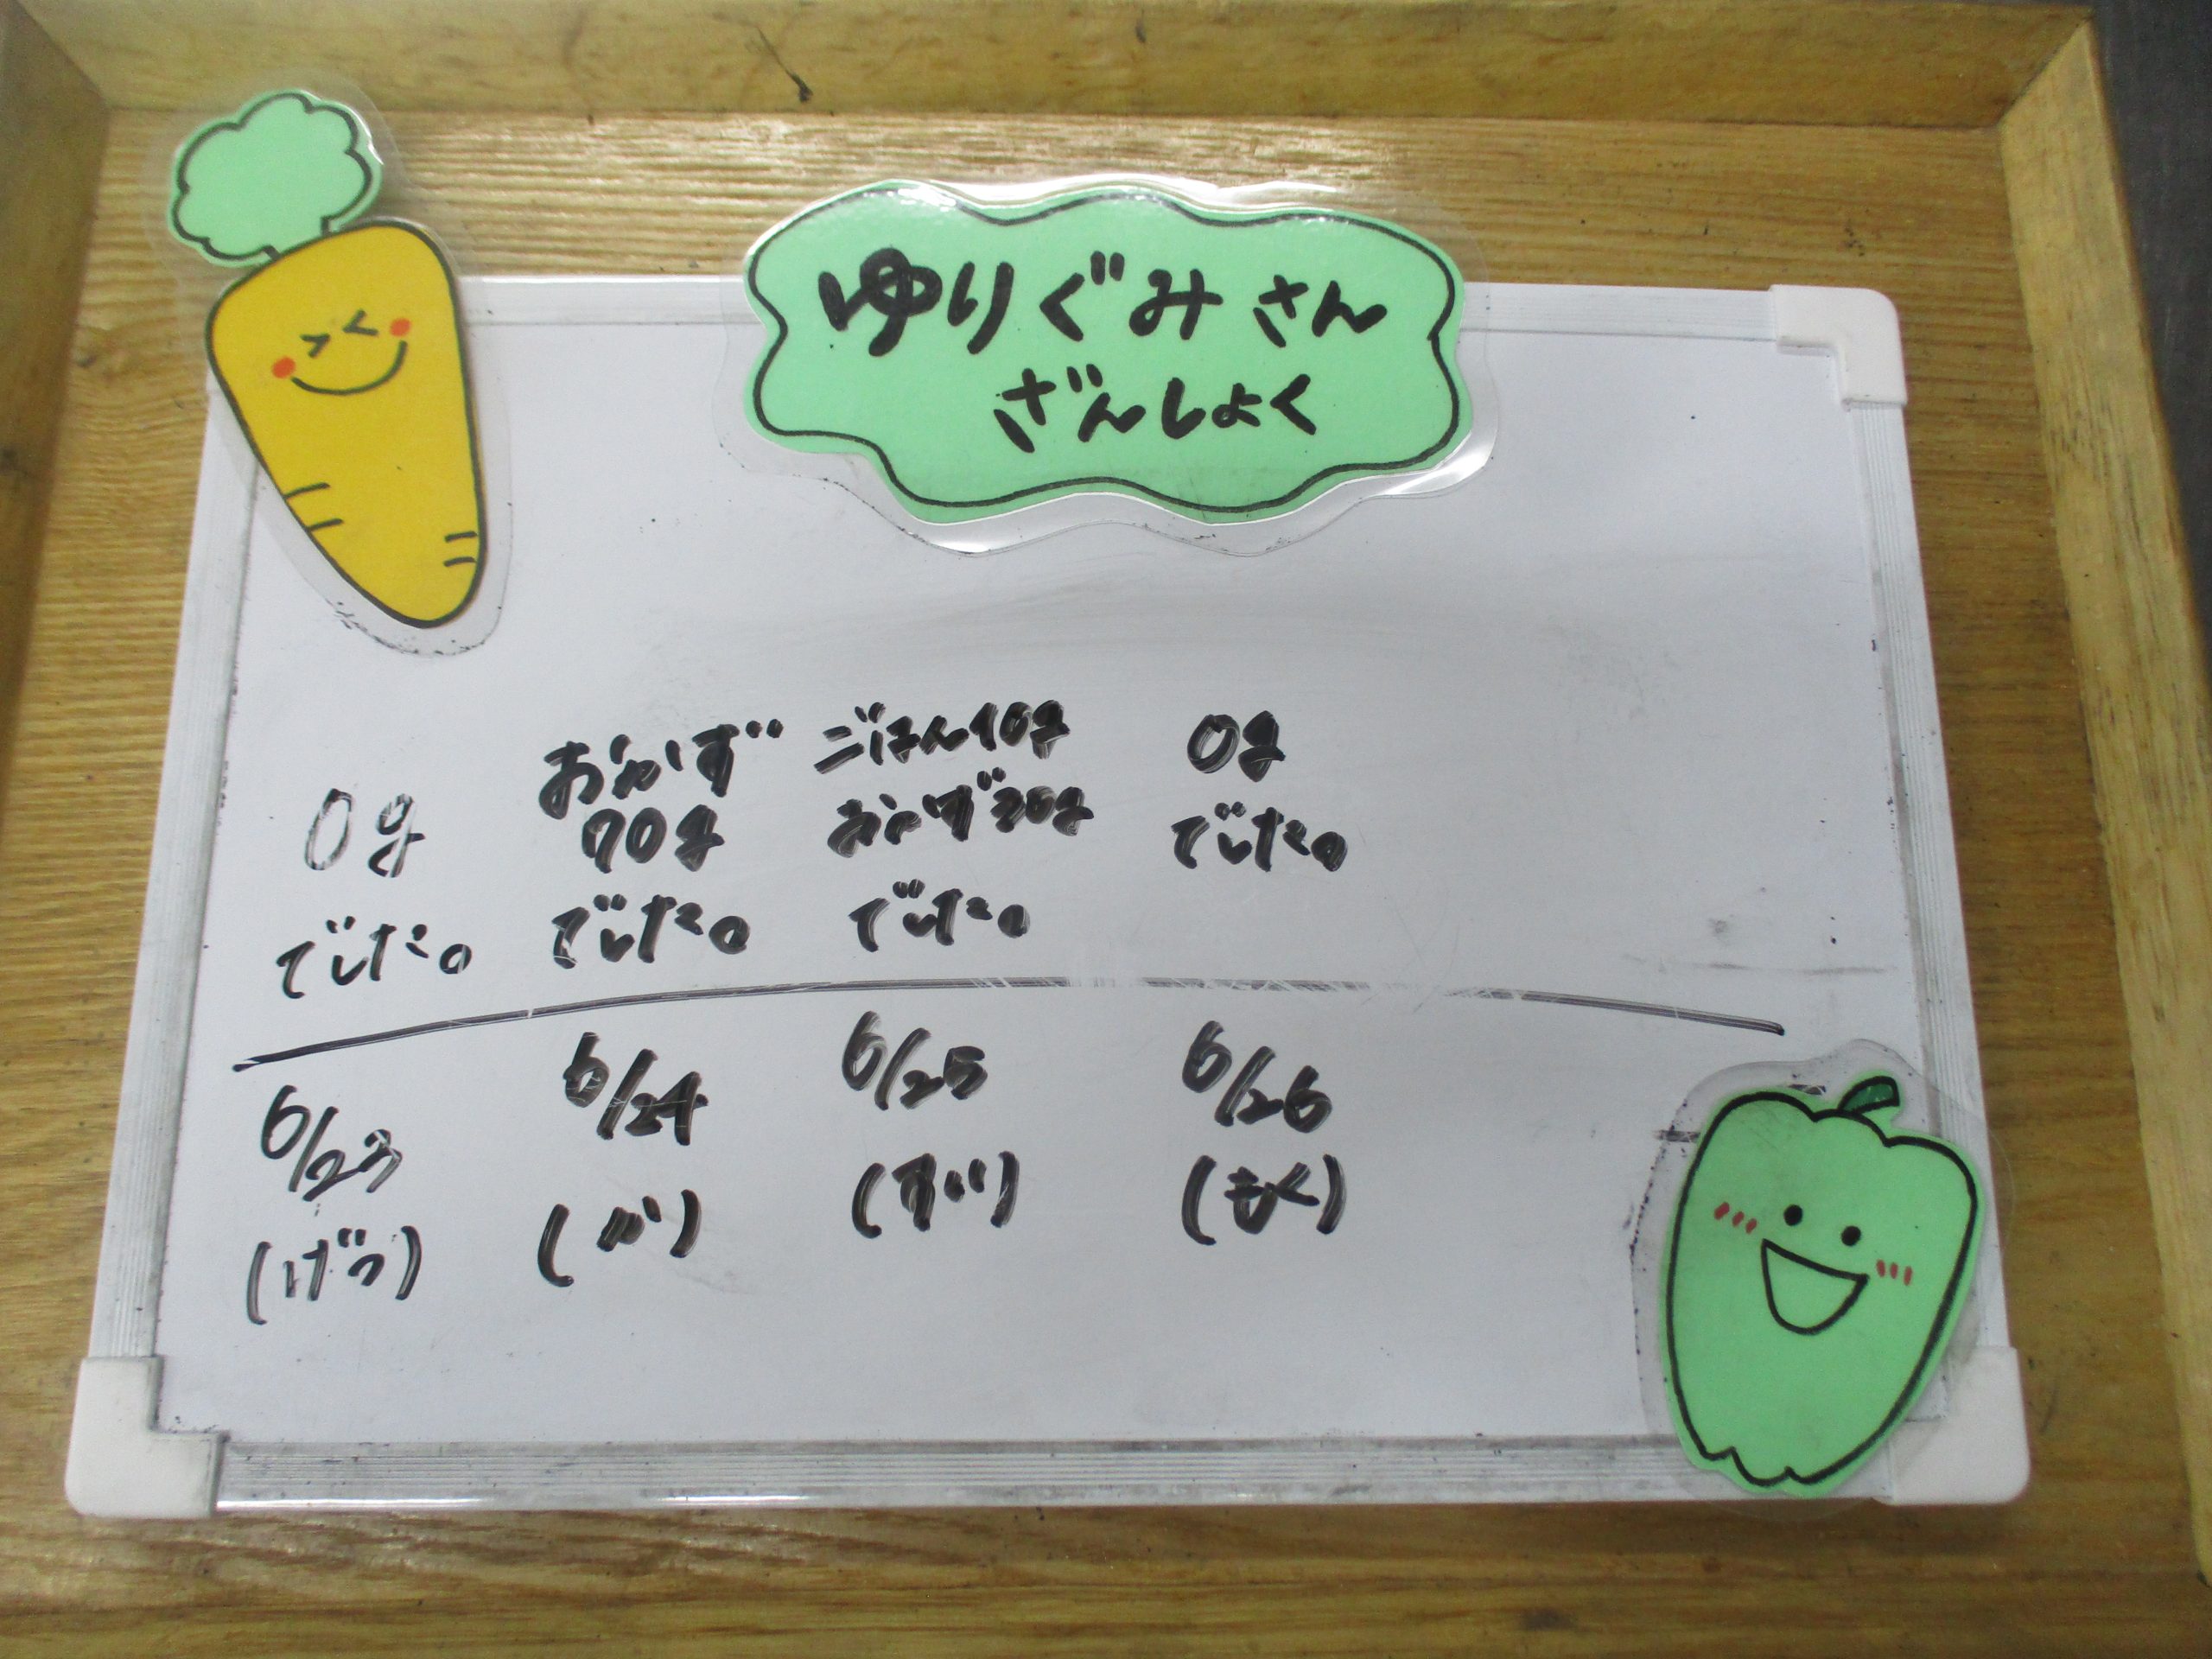 ゆりぐみさん
ざんしょく
0g
でした。
おかず
70g
でした。
ごはん10g
おかず30g
でした。
0g
でした。
6/23
(げつ)
6/24
(か)
6/25
(すい)
6/26
(もく)